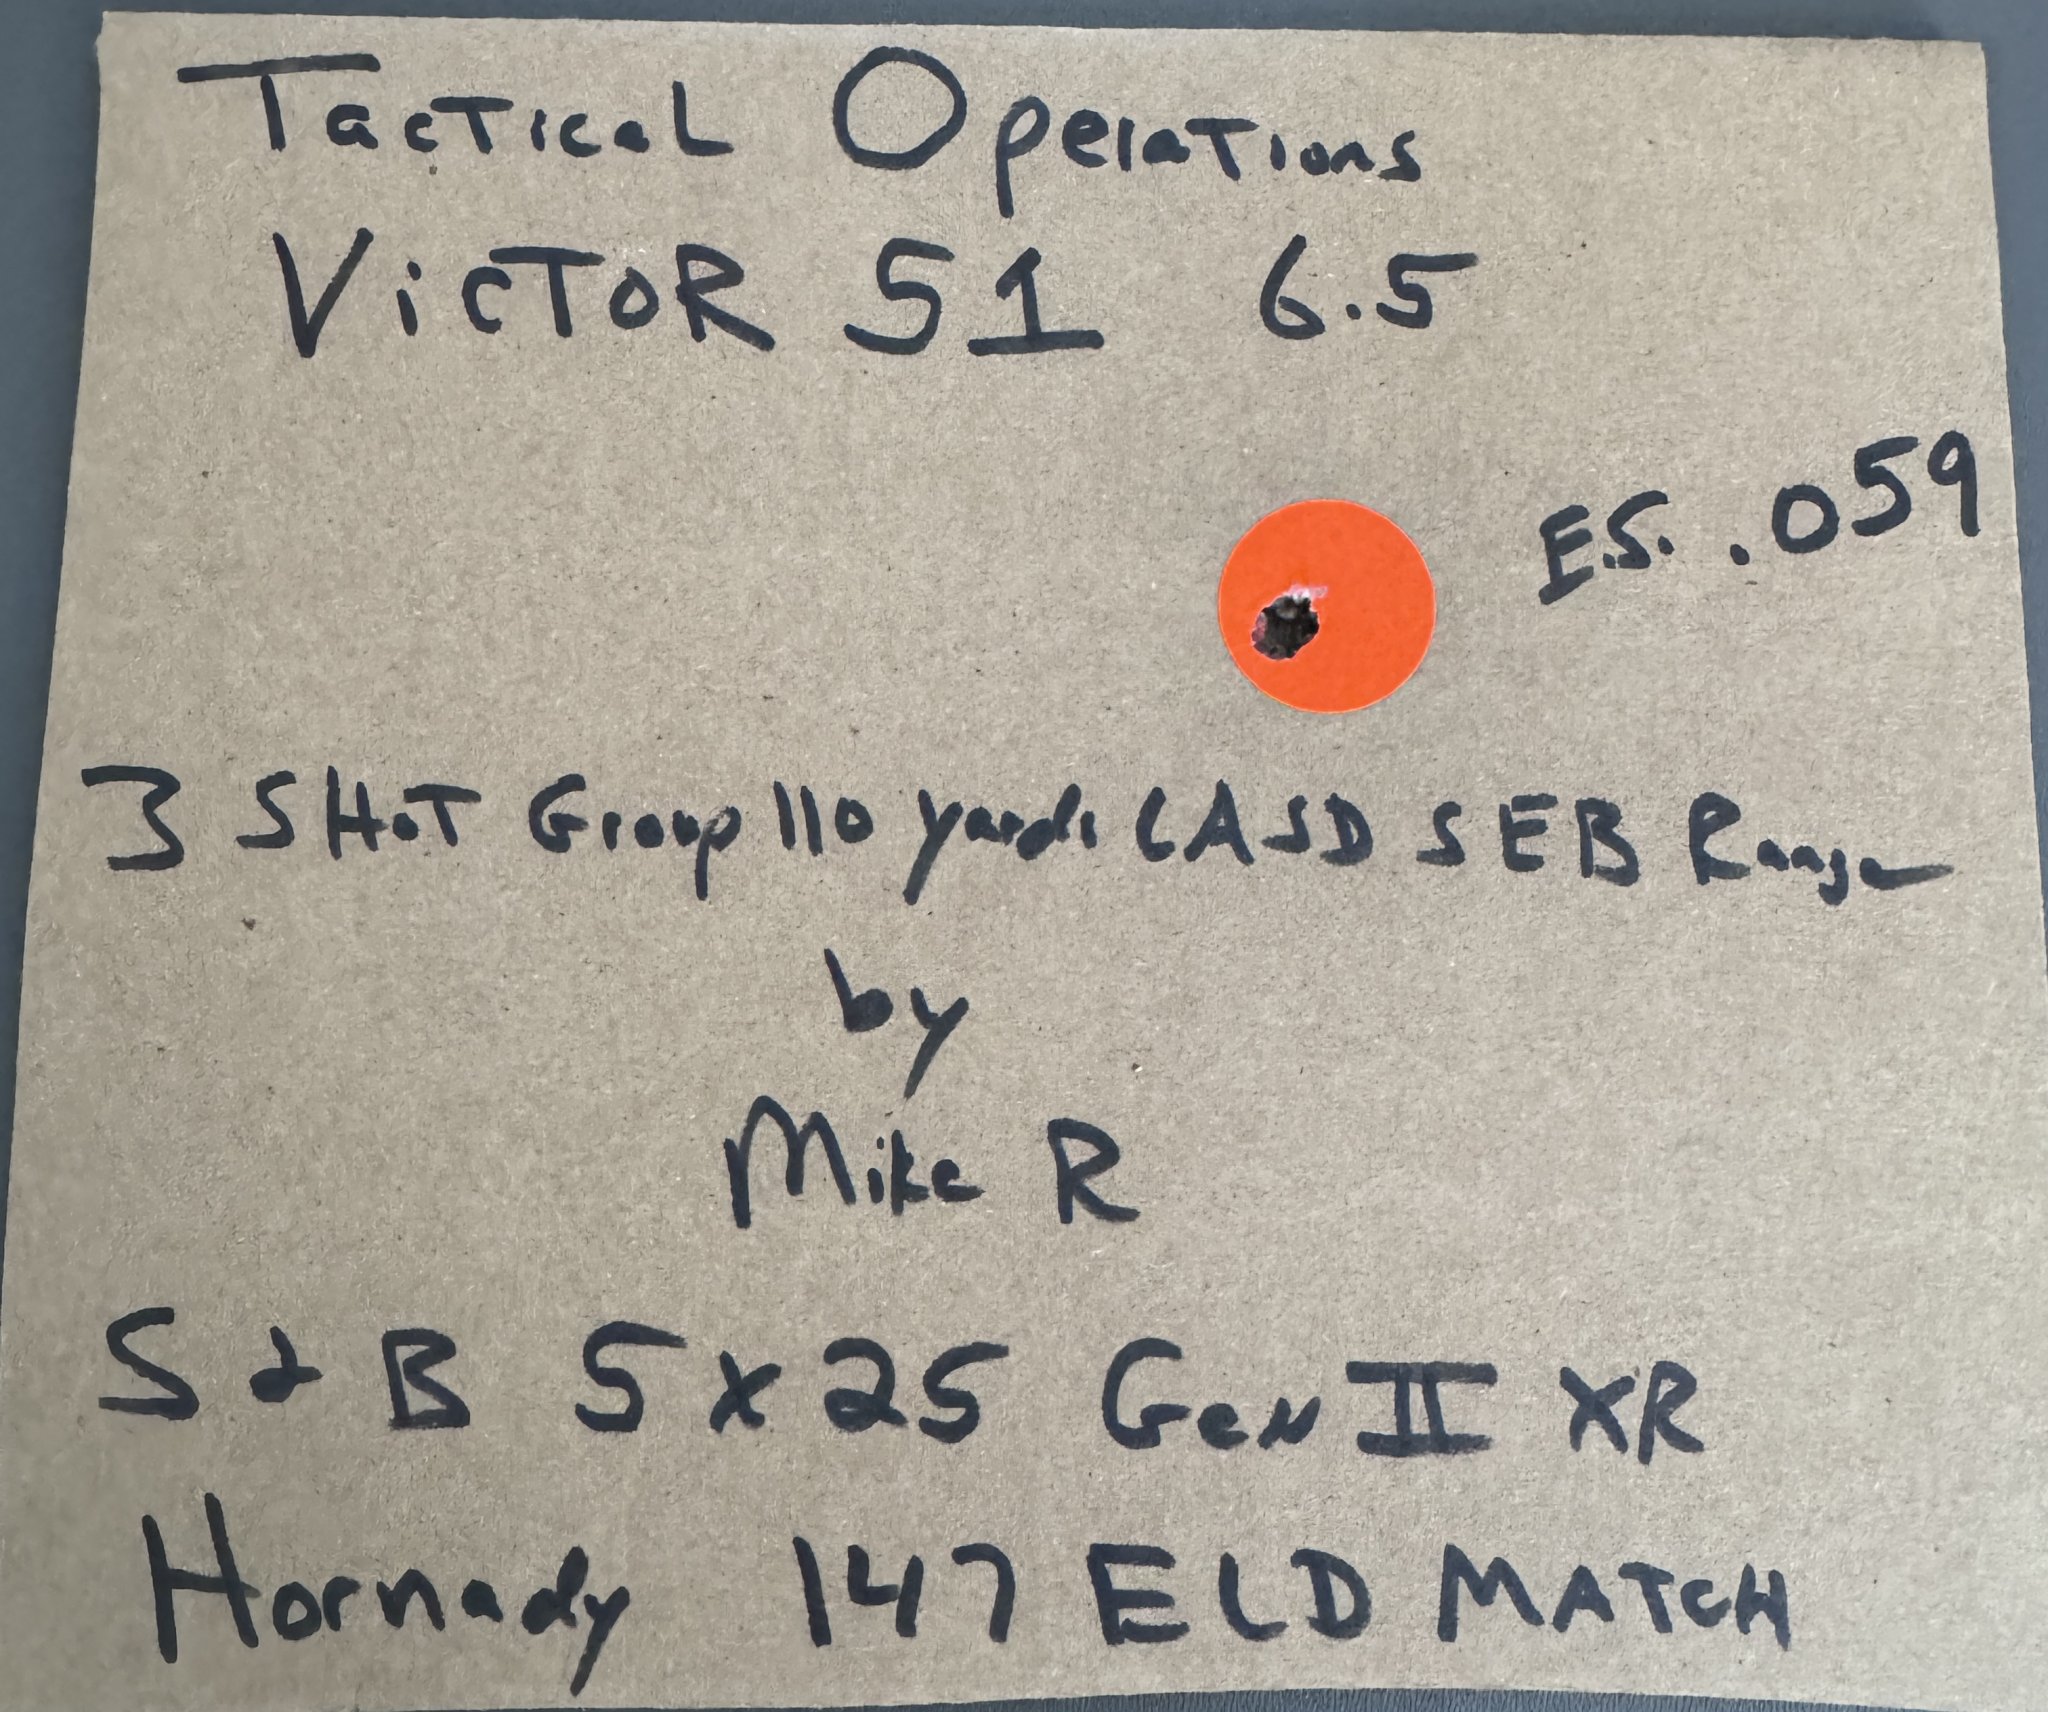 Tactical Operations
VICTOR 51 6.5
E.S. .059
3 SHOT Group 110 yards LASD SEB Range
by
Mike R
S & B 5x25 Gen II XR
Hornady 147 ELD MATCH